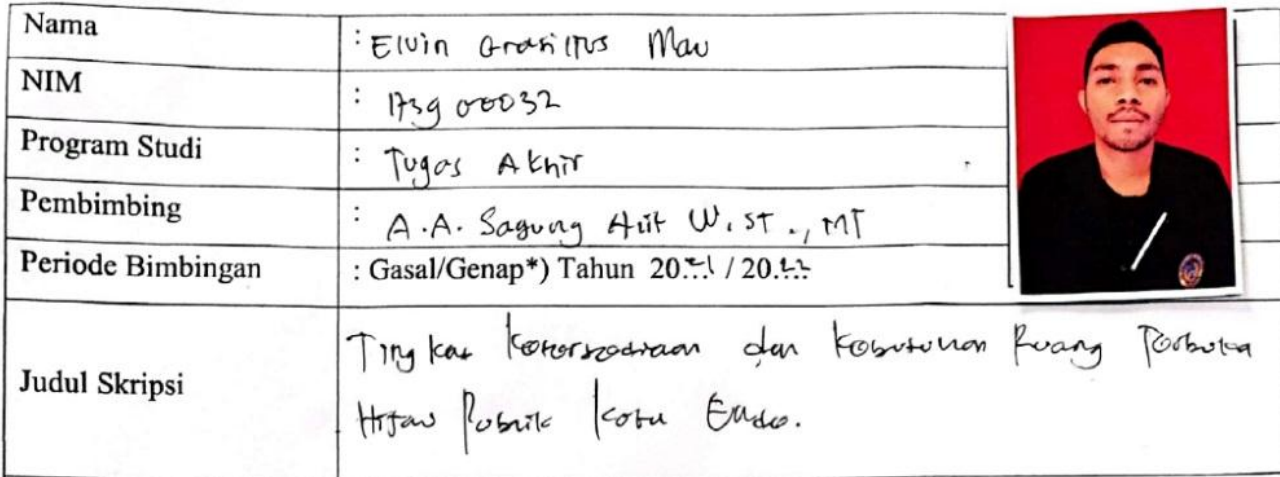 Nama : Elvin Grasilius Mau
NIM : 173900032
Program Studi : Tugas Akhir
Pembimbing : A.A. Sagung Alit W. ST., MT
Periode Bimbingan : Gasal/Genap*) Tahun 2021 / 2022
Judul Skripsi Tingkat Ketersediaan dan Kebutuhan Ruang Terbuka
Hijau Publik Kota Ende.